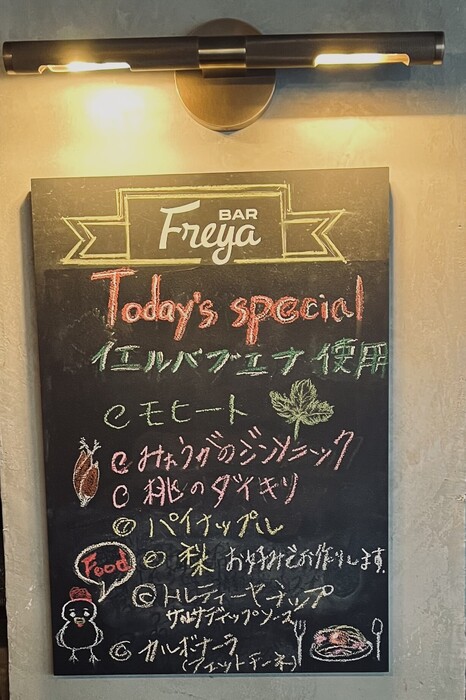 BAR
Freya
Today's special
イエルバブエナ 使用
◎ モヒート
◎ みょうがのジンソニック
◎ 桃のダイキリ
◎ パイナップル
◎ 梨 お好みでお作りします。
Food
◎ トルティーヤチップ
サルサディップソース
◎ カルボナーラ
(フィットチーネ)